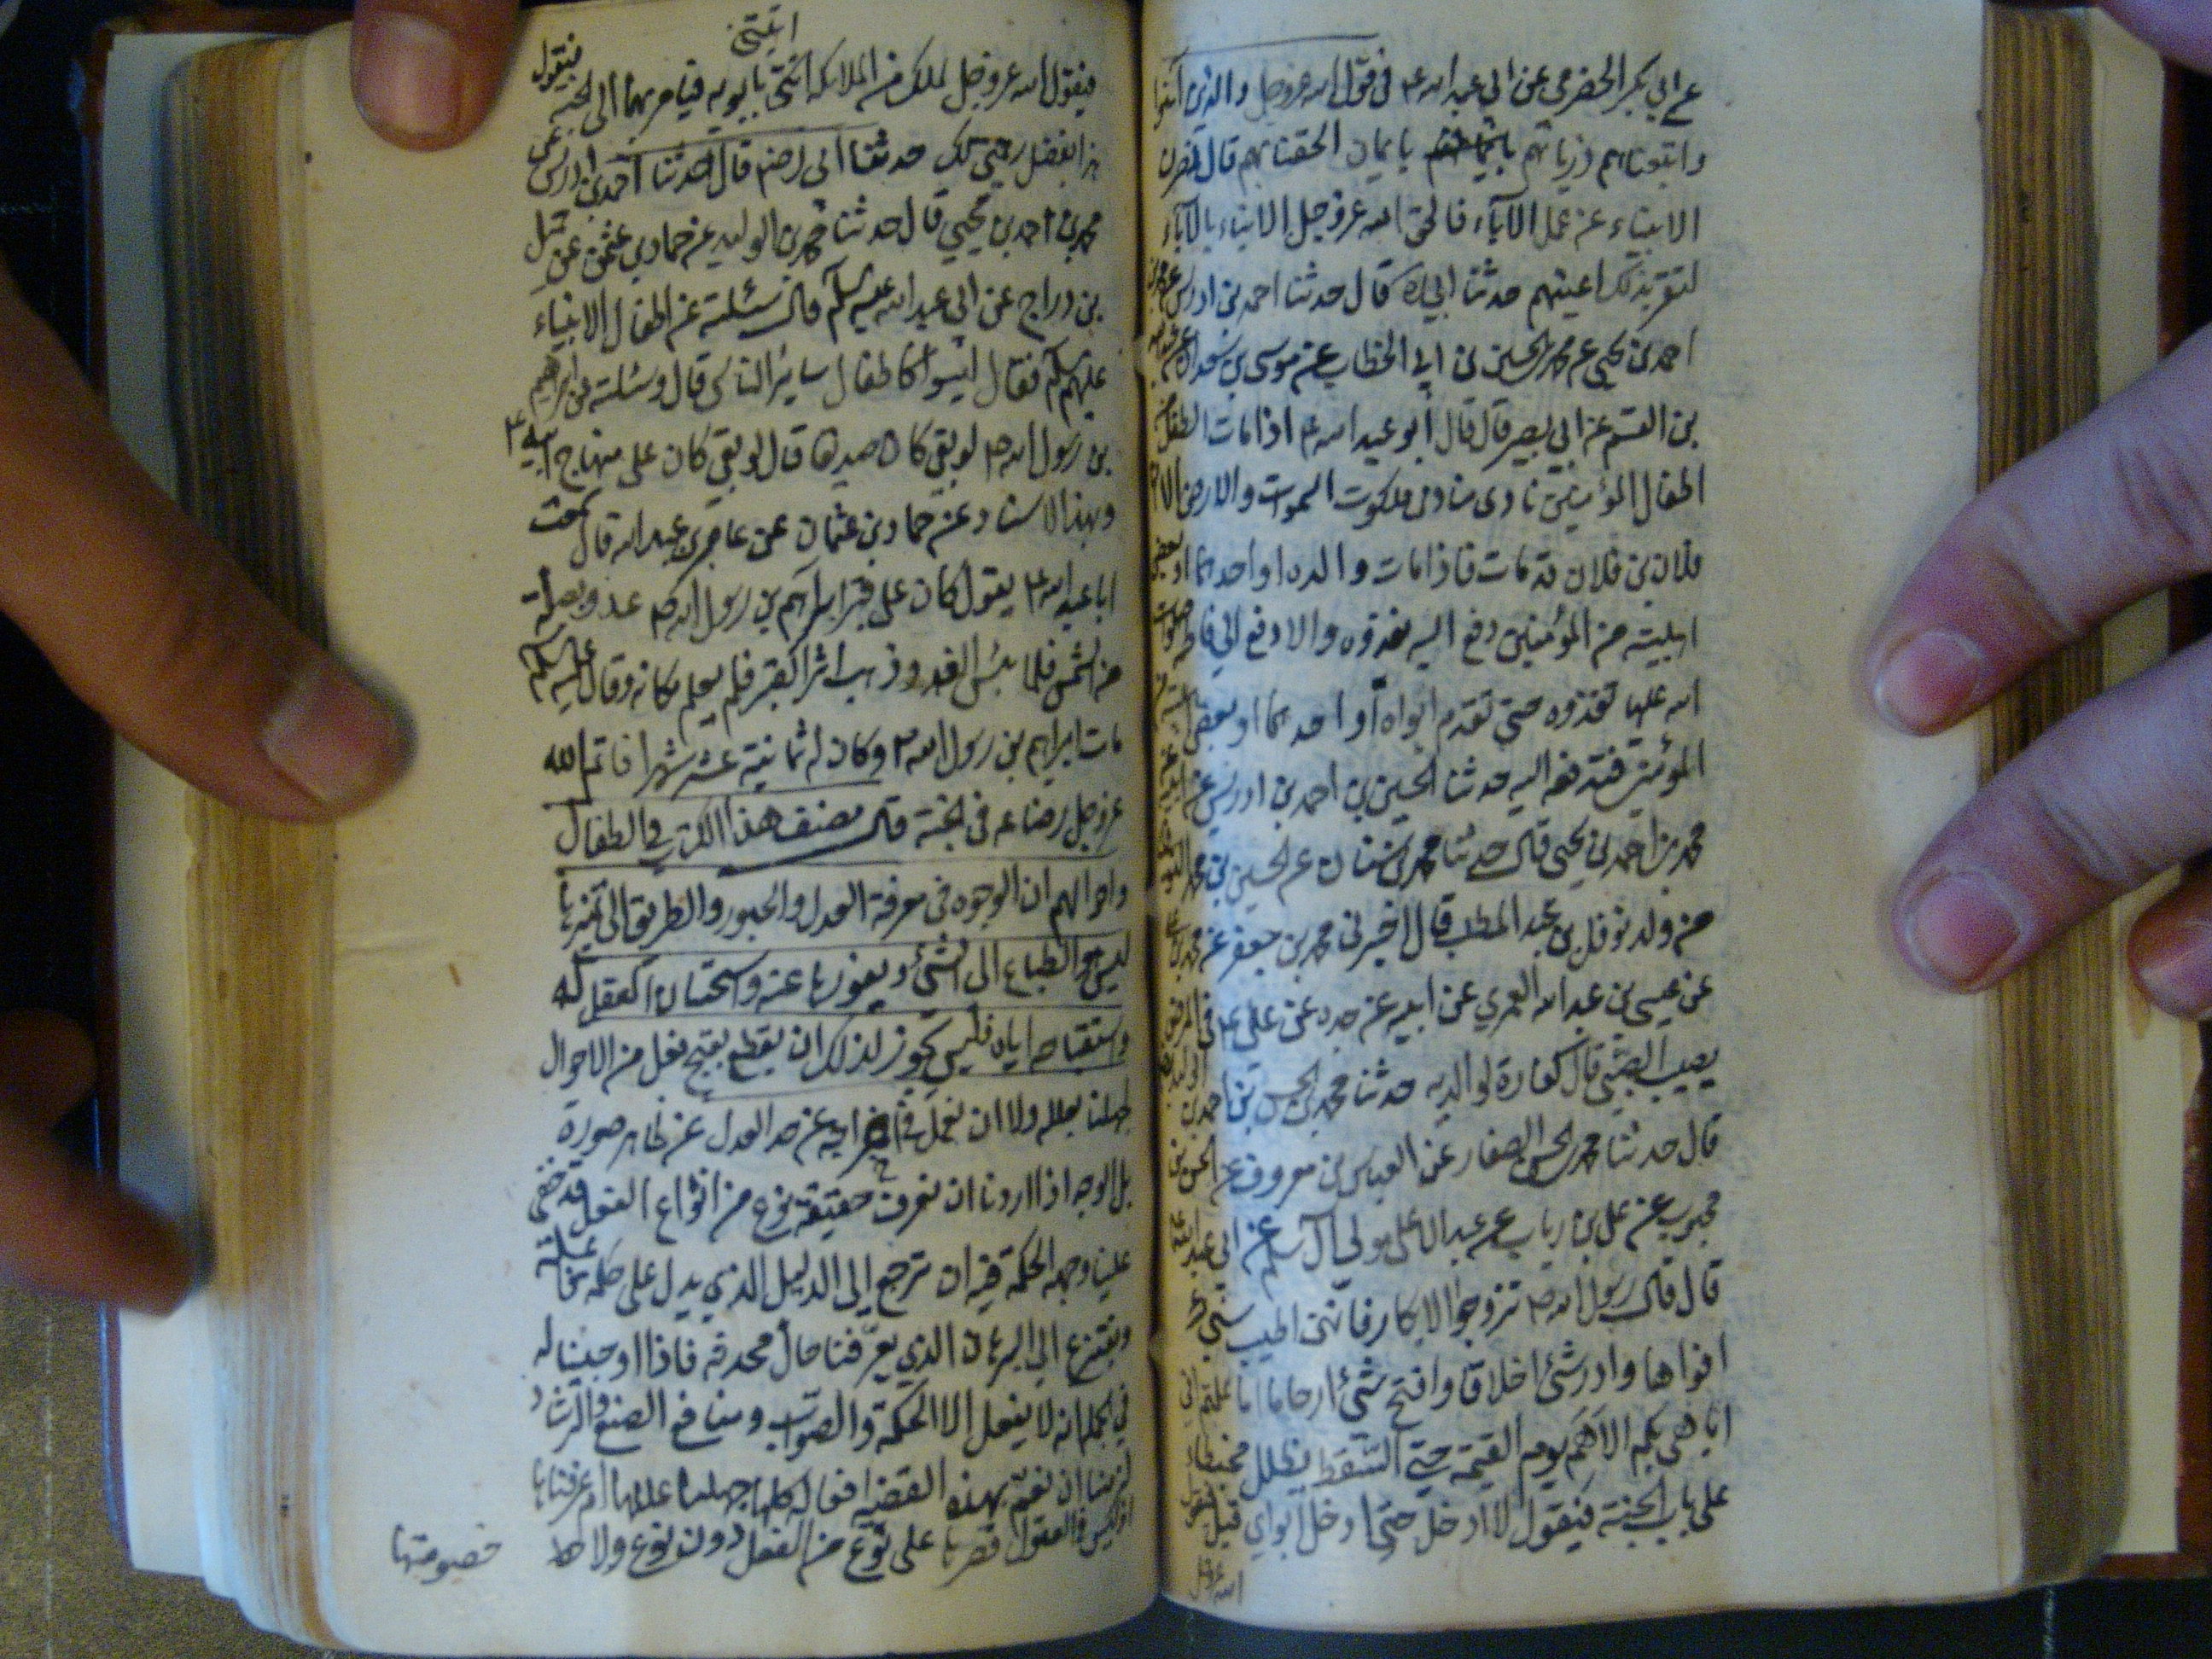 عن ابي بكر الحضرمي عن ابي عبد الله ع في قول الله عز وجل والذين آمنوا
واتبعناهم ذرياتهم بايمان الحقنا بهم قال قصرت
الابناء عن عمل الآباء فالحق الله عز وجل الابناء بالآباء
لتقر بذلك اعينهم حدثنا ابي ره قال حدثنا احمد بن ادريس عن محمد بن
احمد بن يحيى عن محمد بن الحسين بن ابي الخطاب عن موسى بن سعدان عن عبد الله
بن القسم عن ابي بصير قال قال ابو عبد الله ع اذا مات الطفل من
اطفال المؤمنين نادى مناد في ملكوت السموات والارض الا ان
فلان بن فلان قد مات فاذا مات والداه او احدهما او بعض
اهل بيته من المؤمنين دفع اليه يغذوه والا دفع الى فاطمة صلوات
الله عليها تغذوه حتى تقدم ابواه او احدهما او بعض اهل بيته من
المؤمنين فتدفعه اليه حدثنا الحسين بن احمد بن ادريس عن ابيه عن
محمد بن احمد بن يحيى قال حدثنا محمد بن سنان عن الحسين بن محمد
من ولد نوفل بن عبد المطلب قال اخبرني محمد بن جعفر عن محمد بن علي
عن عيسى بن عبد الله العمري عن ابيه عن جده عن علي ع في المرض
يصيب الصبي قال كفارة لوالديه حدثنا محمد بن الحسن بن احمد بن الوليد
قال حدثنا محمد بن الحسن الصفار عن العباس بن معروف عن الحسن بن
محبوب عن علي بن رياب عن عبد الاعلى مولى آل سام عن ابي عبد الله ع
قال قال رسول الله ص تزوجوا الابكار فانهن اطيب شيء
افواها وادر شيء اخلاقا وافتح شيء ارحاما اما علمتم اني
اباهي بكم الامم يوم القيمة حتى السقط يظلل محبنطئا
على باب الجنة فيقول لا ادخل حتى دخل ابواي قبلي فيقول
الله عز وجل
فيقول الله عز وجل لملك من الملائكة ائتني بابويه فيامر بهما الى الجنة فيقول
هذا بفضل رحمتي لك حدثنا ابي رضه قال حدثنا احمد بن ادريس عن
محمد بن احمد بن يحيى قال حدثنا محمد بن الوليد عن حماد بن عثمن عن جميل
بن دراج عن ابي عبد الله عليه السلام قال سئلته عن اطفال الانبياء
عليهم السلم فقال ليسوا كاطفال ساير الناس قال وسئلته عن ابراهيم
بن رسول الله ص لو بقي كان صديقا قال لو بقي كان على منهاج ابيه ع
وبهذا الاسناد عن حماد بن عثمان عن عامر بن عبد الله قال سمعت
ابا عبد الله ع يقول كان على قبر ابراهيم بن رسول الله ص عذق يظله
من الشمس فلما يبس العذق ذهب اثر القبر فلم يعلم مكانه وقال عليه السلم
مات ابراهيم بن رسول الله ص وكان له ثمانية عشر شهرا فاتم الله
عز وجل رضاعه في الجنة قال مصنف هذا الكتاب في الاطفال
واحوالهم ان الوجوه في معرفة العدل والجور والطريق الى تميزها
ليس هو الطباع الى الشيء ونفورها عنه واستحسان العقل له
واستقباحه اياه فليس يجوز لذلك ان يقطع بقبح فعل من الافعال
لجهلنا بعلله ولا ان نعمل في اخراجه عن حد العدل عن ظاهر صورته
بل الوجه اذا اردنا ان نعرف حقيقة نوع من انواع الفعل قد خفي
علينا وجه الحكمة فيه ان نرجع الى الدليل الذي يدل على حكمة فاعله
ونفزع الى البرهان الذي يعرفنا حال محدثه فاذا اوجبنا له
في الجملة انه لا يفعل الا الحكمة والصواب وما فيه الصنع والرشاد
لزمنا ان نعم بهذه القضية افعاله كلها جهلنا عللها ام عرفناها
اذ ليس في العقول قصرها على نوع من الفعل دون نوع ولا
خصوصها